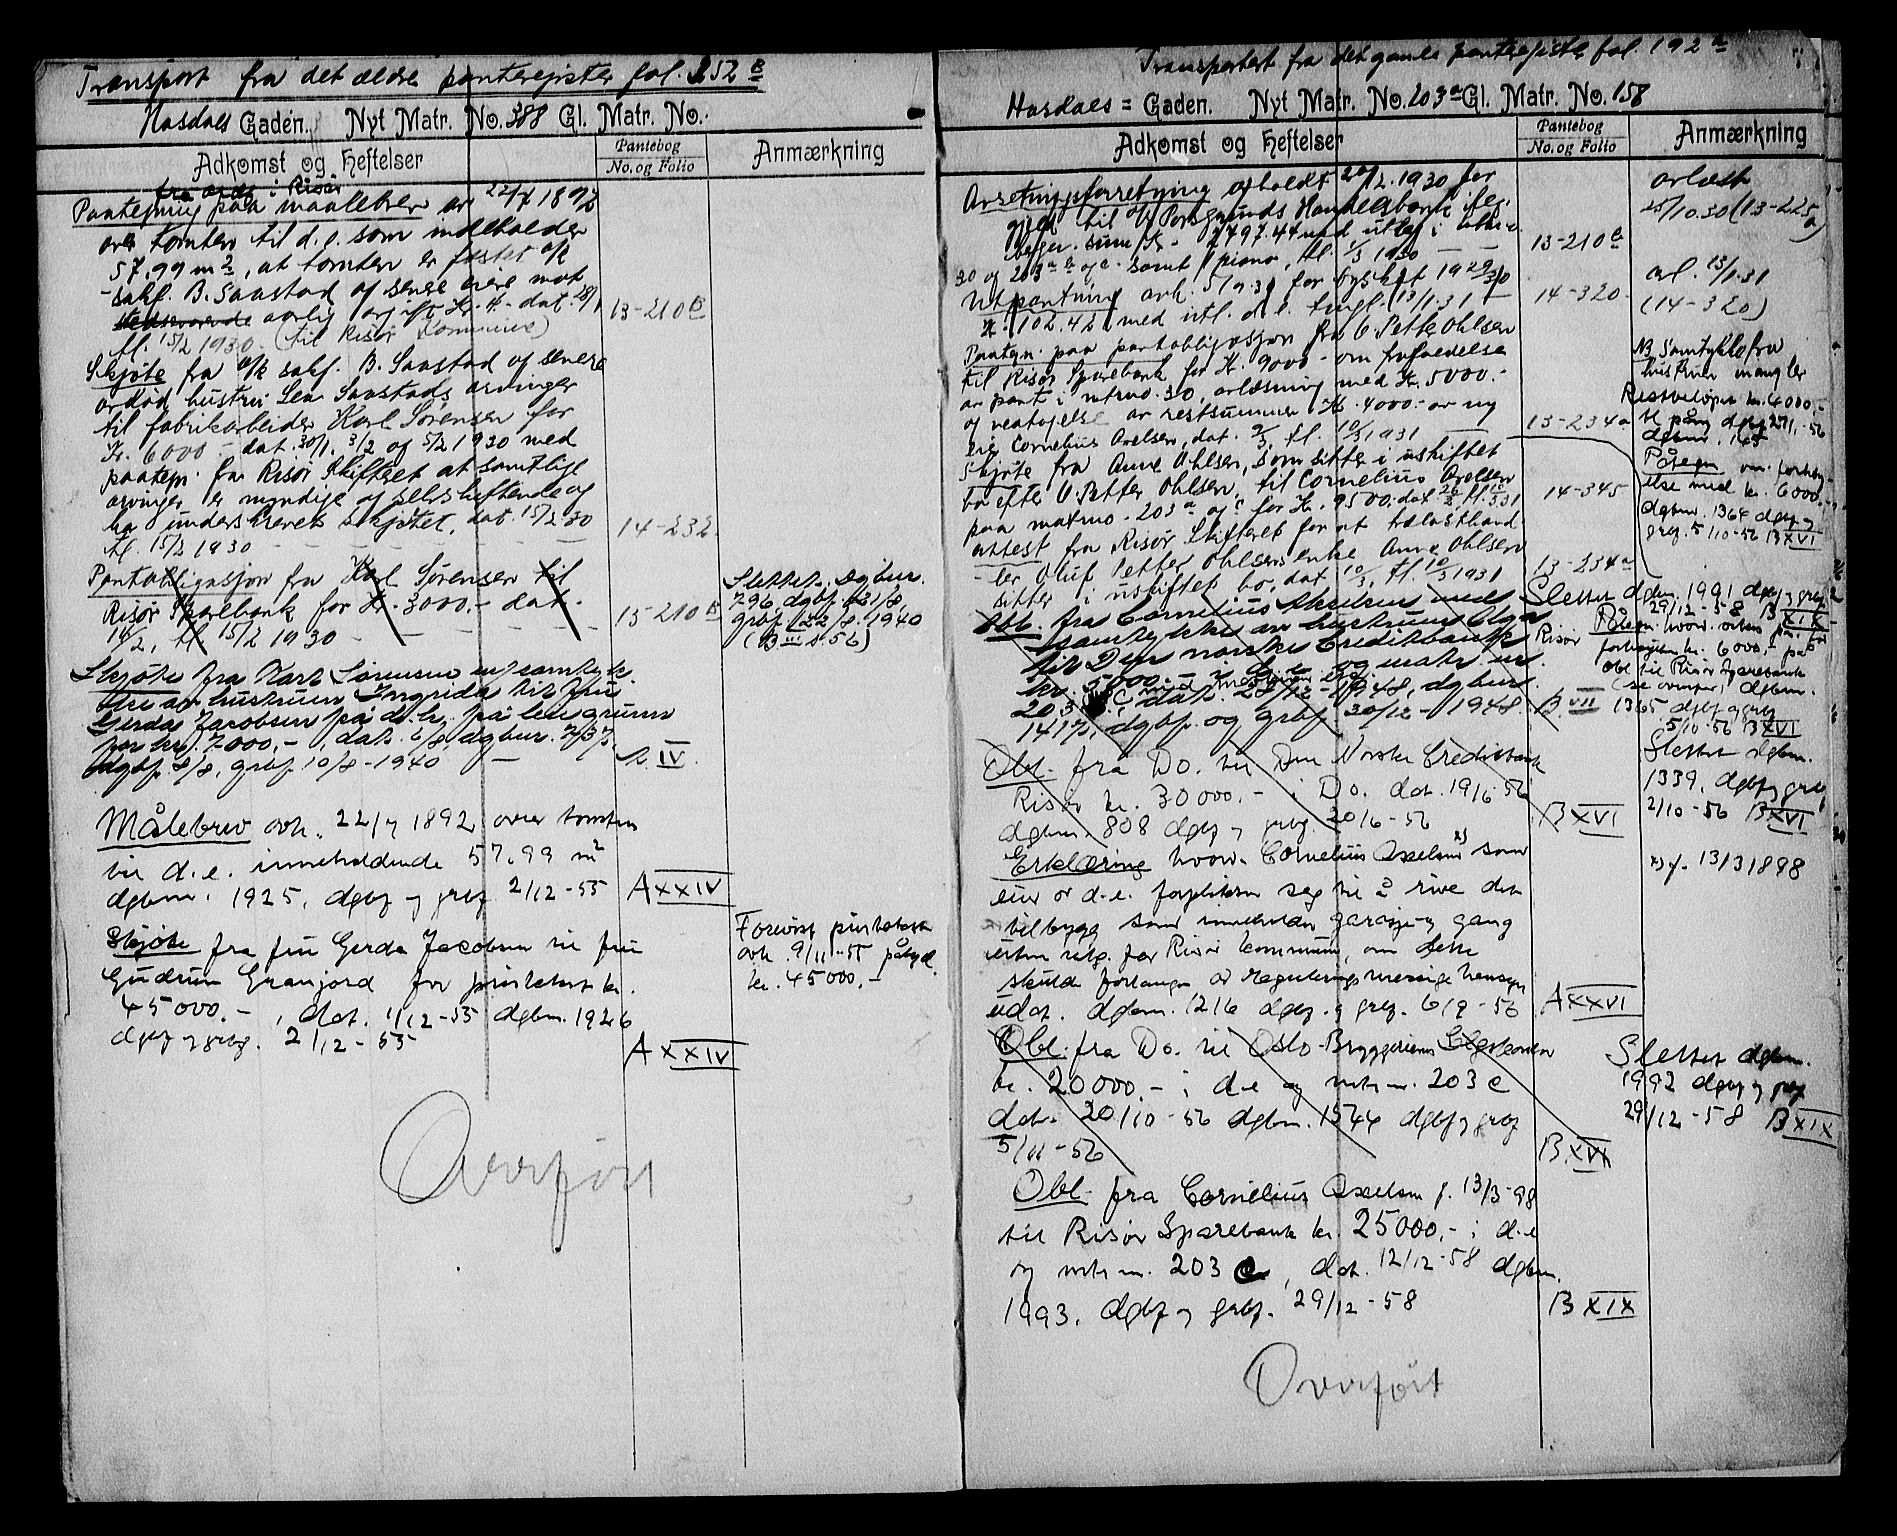 Transport fra det ældre panteregister fol. 252 B
Hasdals Gaden. Nyt Matr. No. 388 Gl. Matr. No.
Adkomst og Heftelser
Pantebog
No. og Folio
Anmærkning
fra ordf. i Risør
Paategning paa maalebrev av 22/7 1892
over tomten til d.e. som indeholder
57.99 m², at tomten er festet a/k
sakf. B. Saastad og senere eiere mot
aarlig avgift Kr. 4.- dat. 28/1
tl. 15/2 1930. (til Risør Kommune)
13-210 B
Skjøte fra o/r sakf. B. Saastad og senere
avdød hustru Lea Saastads arvinger
til fabrikarbeider Karl Sørensen for
Kr. 6000.- dat. 30/1, 3/2 og 5/2 1930 med
paategn. fra Risør Skifteret at samtlige
arvinger er myndige og selvskiftende og
ha underskrevet skjøtet, dat. 15/2 30
tl. 15/2 1930
14-232.
Pantobligasjon fra Karl Sørensen til
Risør Sparebank for Kr. 3000.- dat.
14/2, tl 15/2 1930
15-210 B
Slettet, dgbnr.
796, dgbf. 21/8,
grbf. 22/8. 1940
(B III s. 56)
Skjøte fra Karl Sørensen m/ samtyk-
ke av hustruen Ingrida til fru
Gerda Jacobsen på d.e. på leiegrunn
for kr. 7000,-, dat. 6/8, dgbnr. 737,
dgbf. 8/8, grbf. 10/8 - 1940
A. IV.
Målebrev avh. 22/7 1892 over tomten
til d.e. inneholdende 57.99 m²
dgbnr. 1925, dgbf og grbf 2/12-55
A XXIV
Skjøte fra fru Gerda Jacobsen til fru
Gudrun Granjord for pristakst kr.
45000.-, dat. 1/12-55 dgbnr. 1926
dgbf og grbf. 2/12-55
A XXIV
Forevist pristakst
avh. 9/11-55 pålyd.
kr. 45000.-
Overført
Transportert fra det gamle panteregister fol. 192 a
Hasdals = Gaden. Nyt Matr. No. 203a Gl. Matr. No. 158
Adkomst og Heftelser
Pantebog
No. og Folio
Anmærkning
Arrestningsforretning avholdt 20/2. 1930 for
gjeld til A/S Porsgrunds Handelsbank
2797.44 med utlegg i
30 og 203 a b og c. samt 1 piano, tl. 1/3 1930
13-210 B
avlæst
25/10.30 (13-225 a)
Utpantning avh. 5/9.30 for byskatt 1929/30
Kr. 102.42 med utl. d.e. tingl. 13/1.31
14-320.
avl. 13/1.31
(14-320)
Paategn. paa pantobligasjon fra O. Petter Ohlsen
til Risør Sparebank for Kr. 9000.- om frafaldelse
av pant i mtrno. 30, avlæsning med Kr. 5000.-
og vedtagelse av restsummen Kr. 4000.- av ny
eier Cornelius Axelsen, dat. 9/3, tl. 10/3 1931
13-234 a
NB Samtykke fra
hustruen mangler
Restbeløpet kr. 4000.-
Skjøte fra Anne Ohlsen, som sitter i uskiftet
bo efter O. Petter Ohlsen, til Cornelius Axelsen
paa matrno. 203 a og c for Kr. 9500. dat 26/2 tl. 10/3 31
14-345
Påtegn om forhøy-
else med kr. 6000.-
dgbnr. 1364 dgbf og
grbf. 5/10-56 B XVI
attest fra Risør Skifteret for at trælasthand-
ler Oluf Petter Ohlsens enke Anne Ohlsen
sitter i uskiftet bo, dat. 10/3, tl. 10/3 1931
13-234 a
Obl. fra Cornelius Akselsen med
samtykke av hustruen Olga
til Den norske Creditbank
Risør
kr. 5000.- i d.e. og matr. nr.
203 c, dat. 28/12-1948, dgbnr.
1417, dgbf. og grbf. 30/12-1948.
B. VII
Slettet dgbnr. 1991 dgbf og grbf
29/12-58 B XIX
forhøyelse kr. 6000.- på
obl. til Risør Sparebank
(se ovenfor) dgbnr.
1365 dgbf og grbf
5/10-56 B XVI
Obl. fra Do. til Den Norske Creditbank
Risør kr. 30000.- i Do. dat. 19/6-56
dgbnr. 808 dgbf og grbf 20/6-56
B XVI
Slettet dgbnr.
1339, dgbf og grbf
2/10-56 B XVI
Erklæring hvor. Cornelius Axelsen x) som
eier av d.e. forplikter seg til å rive det
tilbygg som inneholder garasje og gang
uten utg. for Risør kommune, om dette
skulde forlanges av reguleringsmessige hensyn
udat. dgbnr. 1216 dgbf. og grbf. 6/9-56
A XXVI
x) f. 13/3 1898
Obl. fra Do. til Oslo Bryggerienes
kr. 20000.- i d.e og mtr nr. 203 c
dat. 20/10-56 dgbnr. 1544 dgbf og grbf
5/11-56
B. XVI
Slettet dgbnr.
1992 dgbf og grbf
29/12-58 B XIX
Obl. fra Cornelius Axelsen f. 13/3-98
til Risør Sparebank kr. 25000,- i d.e
og mtr nr. 203 c, dat. 12/12-58 dgbnr.
1993. dgbf og grbf. 29/12-58
B XIX
Overført